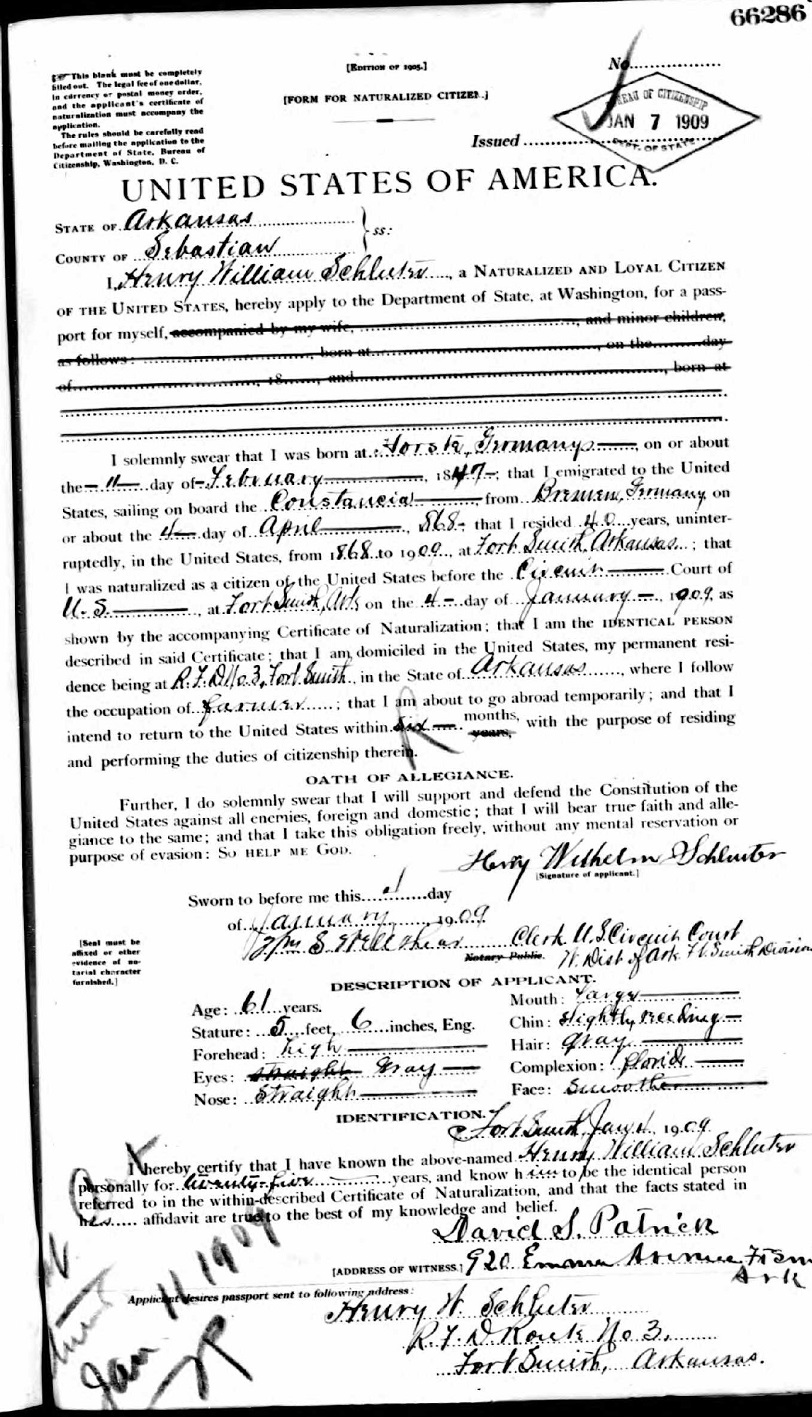 66286
☞ This blank must be completely
filled out. The legal fee of one dollar,
in currency or postal money order,
and the applicant's certificate of
naturalization must accompany the
application.
The rules should be carefully read
before mailing the application to the
Department of State, Bureau of
Citizenship, Washington, D. C.
[EDITION OF 1905.]
[FORM FOR NATURALIZED CITIZEN.]
No.
BUREAU OF CITIZENSHIP
JAN 7 1909
DEPT. OF STATE
Issued
UNITED STATES OF AMERICA.
STATE OF Arkansas
COUNTY OF Sebastian } ss:
I, Henry William Schluter, a NATURALIZED AND LOYAL CITIZEN
OF THE UNITED STATES, hereby apply to the Department of State, at Washington, for a pass-
port for myself, accompanied by my wife, , and minor children,
as follows: , born at , on the day
of , 18 , and , born at
I solemnly swear that I was born at Germany, on or about
the 11 day of February, 1847; that I emigrated to the United
States, sailing on board the Constancia from Bremen, Germany on
or about the 4 day of April, 1868 that I resided 40 years, uninter-
ruptedly, in the United States, from 1868 to 1909, at Fort Smith, Arkansas; that
I was naturalized as a citizen of the United States before the Circuit Court of
U. S., at Fort Smith, Ark on the 4 day of January, 1909, as
shown by the accompanying Certificate of Naturalization; that I am the IDENTICAL PERSON
described in said Certificate; that I am domiciled in the United States, my permanent resi-
dence being at R. F. D No 3, Fort Smith in the State of Arkansas, where I follow
the occupation of farmer; that I am about to go abroad temporarily; and that I
intend to return to the United States within six months, years, with the purpose of residing
and performing the duties of citizenship therein.
OATH OF ALLEGIANCE.
Further, I do solemnly swear that I will support and defend the Constitution of the
United States against all enemies, foreign and domestic; that I will bear true faith and alle-
giance to the same; and that I take this obligation freely, without any mental reservation or
purpose of evasion: SO HELP ME GOD.
Henry Wilhelm Schluter
[Signature of applicant.]
Sworn to before me this day
of January 1909
Clerk U. S. Circuit Court
Notary Public. W. Dist of Ark Ft Smith Division
[Seal must be
affixed or other
evidence of no-
tarial character
furnished.]
DESCRIPTION OF APPLICANT.
Age: 61 years.
Stature: 5 feet, 6 inches, Eng.
Forehead: high
Eyes: straight Gray
Nose: Straight
Mouth: Large
Chin: slightly receeding
Hair: gray
Complexion: florid
Face: Smooth
IDENTIFICATION.
Fort Smith, Jan 4 1909
I hereby certify that I have known the above-named Henry William Schluter
personally for twenty-five years, and know him to be the identical person
referred to in the within-described Certificate of Naturalization, and that the facts stated in
his affidavit are true to the best of my knowledge and belief.
David S. Patrick
[ADDRESS OF WITNESS.] 920 Emma Avenue Ft Sm
Ark
Applicant desires passport sent to following address:
Henry W. Schluter
R. F. D Route No 3,
Fort Smith, Arkansas.
Jan 11 1909